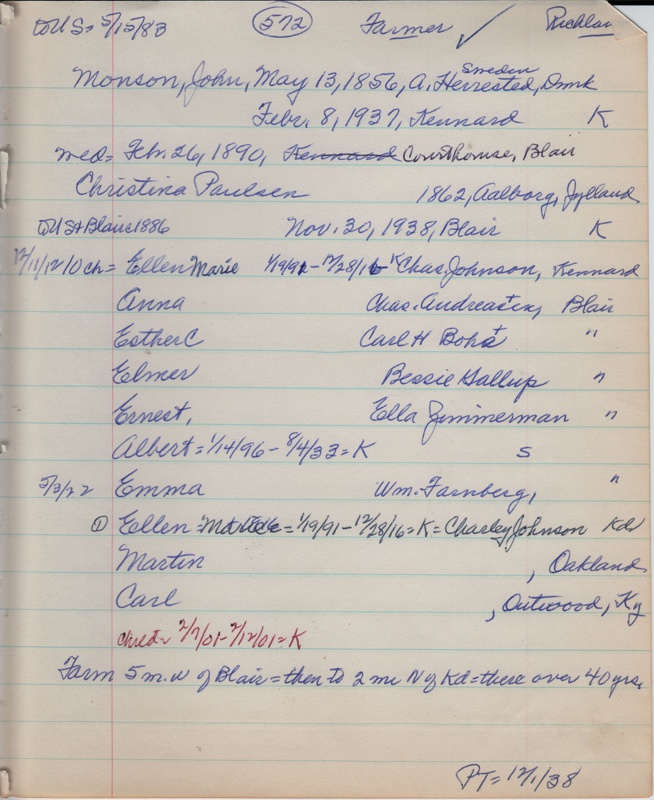 to US= 5/15/83 572 Farmer ✓ Richlan
Sweden
Monson, John, May 13, 1856, A. Herrested, Dmk
Febr. 8, 1937, Kennard K
wed= Feb. 26, 1890, Kennard Courthouse, Blair
Christina Paulsen 1862, Aalborg, Jylland
to US+Blair 1886 Nov. 30, 1938, Blair K
12/11/12 10 ch= Ellen Marie 1/19/91-12/28/16 K Chas. Johnson, Kennard
Anna Chas. Andreasen, Blair
Esther C Carl H Bohs "
Elmer Bessie Gallup "
Ernest, Ella Zimmerman "
Albert= 1/14/96- 8/4/33= K S
5/3/22 Emma Wm. Farnberg, "
① Ellen = 1/19/91-12/28/16= K= Charley Johnson Kd
Martin , Oakland
Carl , Outwood, Ky
child= 2/7/01- 2/12/01= K
Farm 5 m. w of Blair= then to 2 mi N of Kd= there over 40 yrs.
PT= 12/1/38